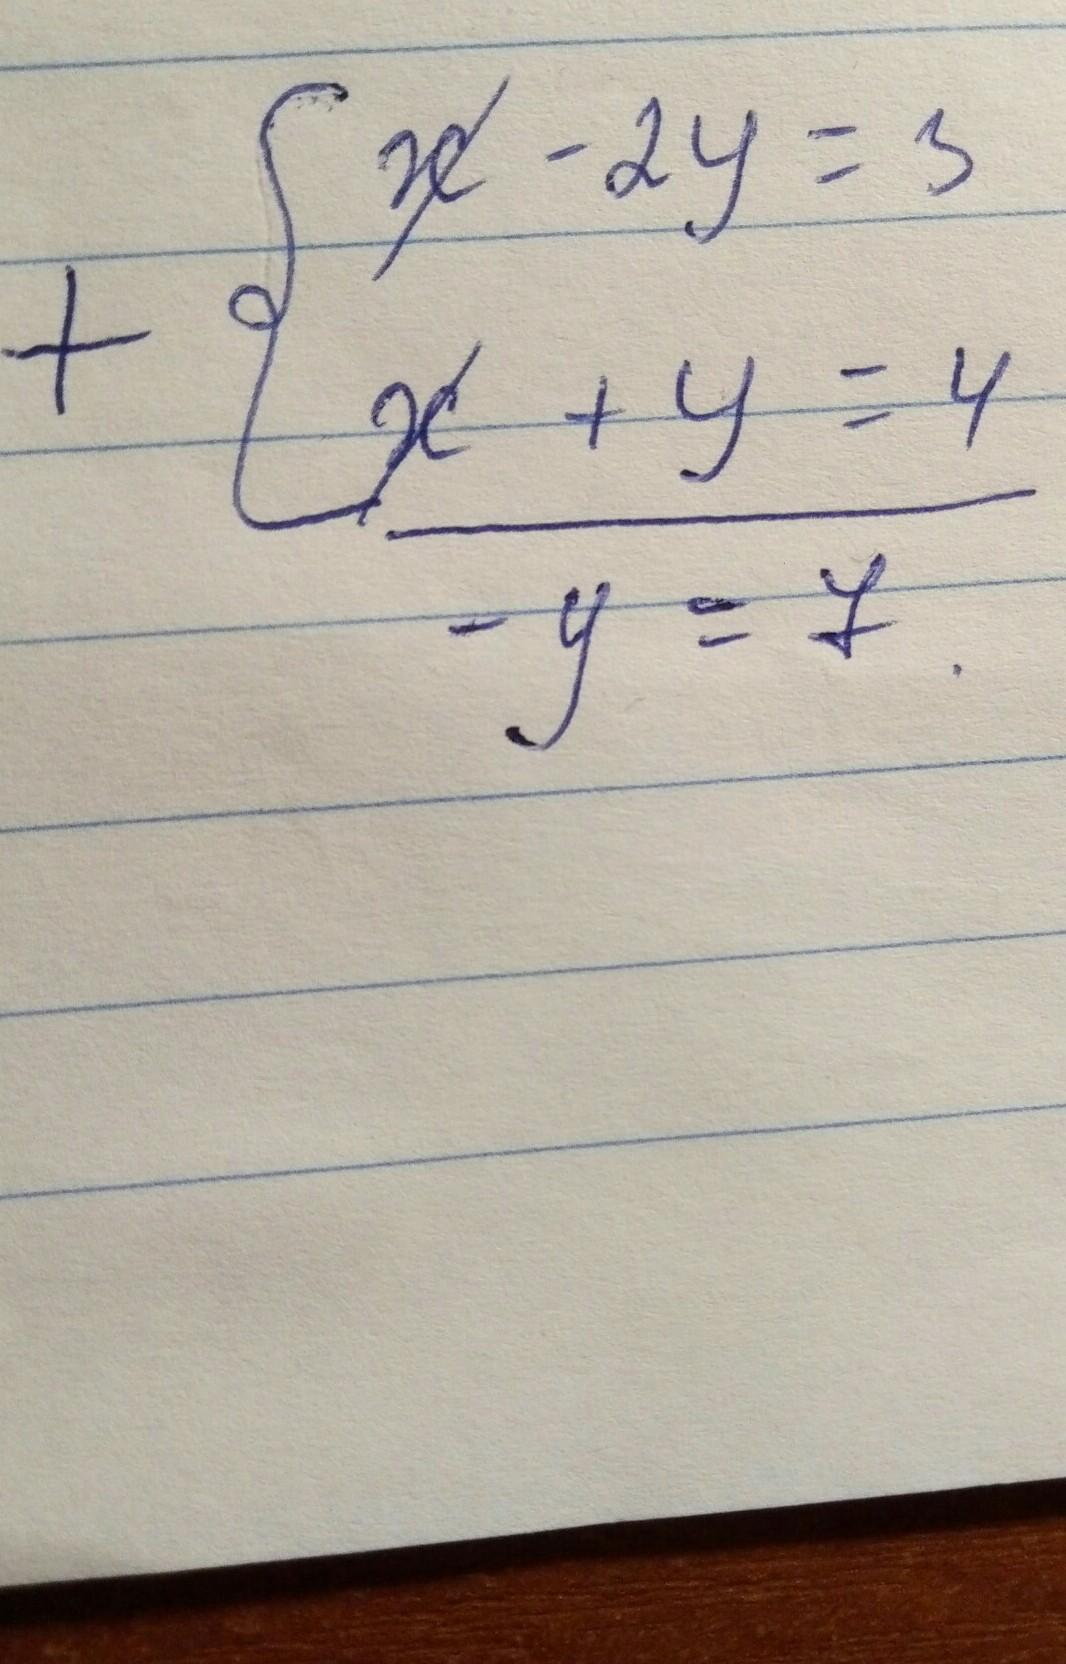 x - 2y = 3
+ { x + y = 4
- y = 7.